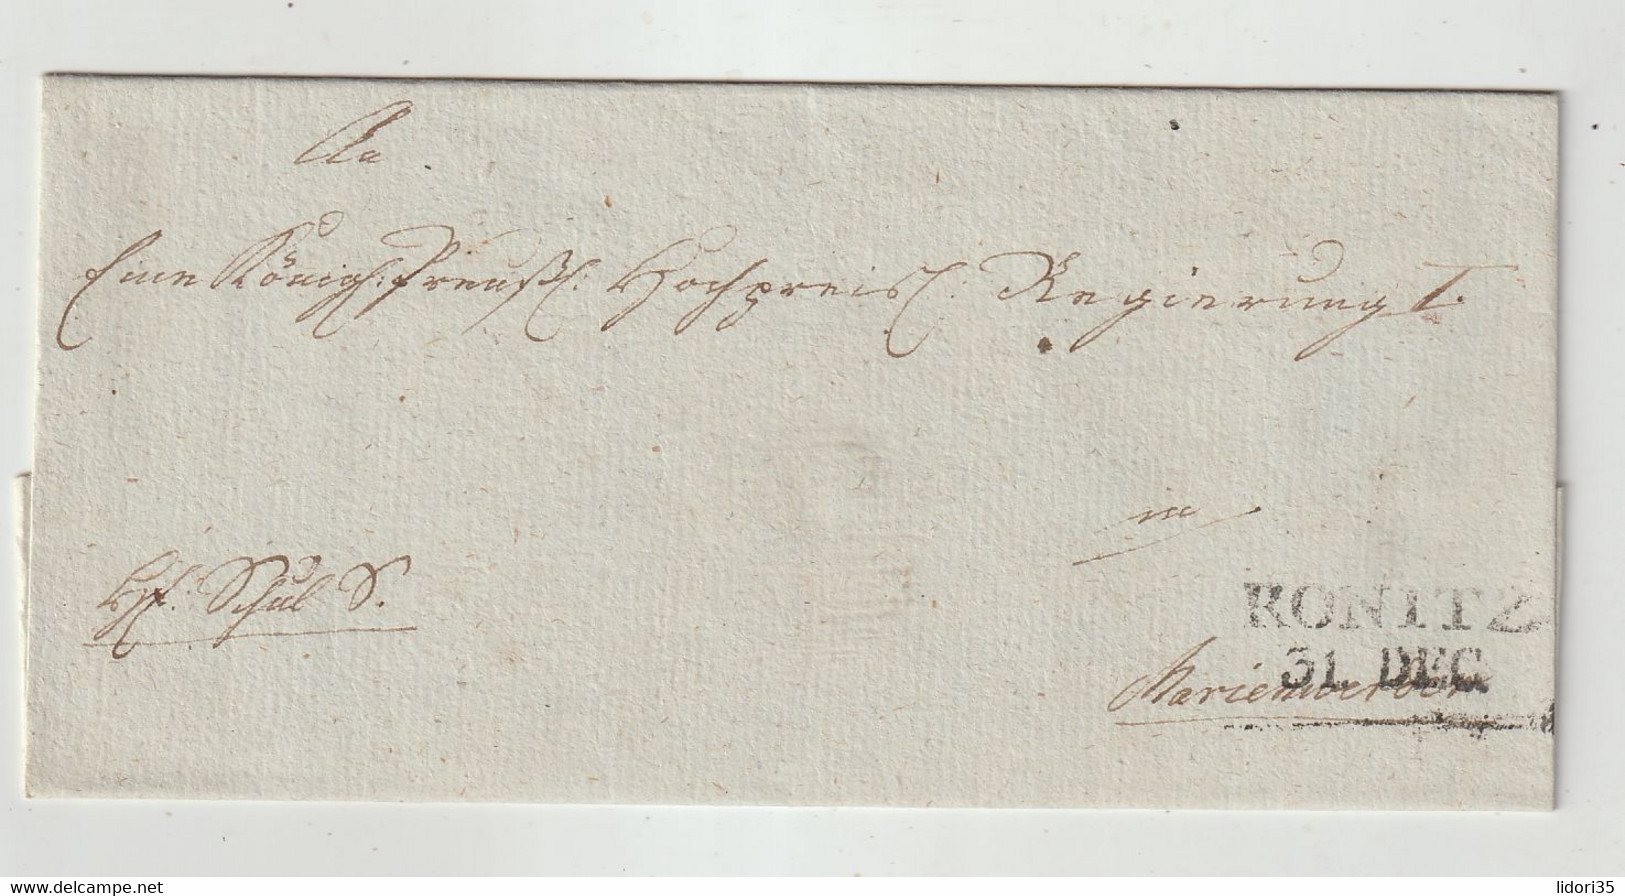 An
Eine Königl: Preußl: Hochpreisl: Regierung I.
in
Schul S.
KONITZ
31. DEC
Marienwerder
www.delcampe.net
lidori35